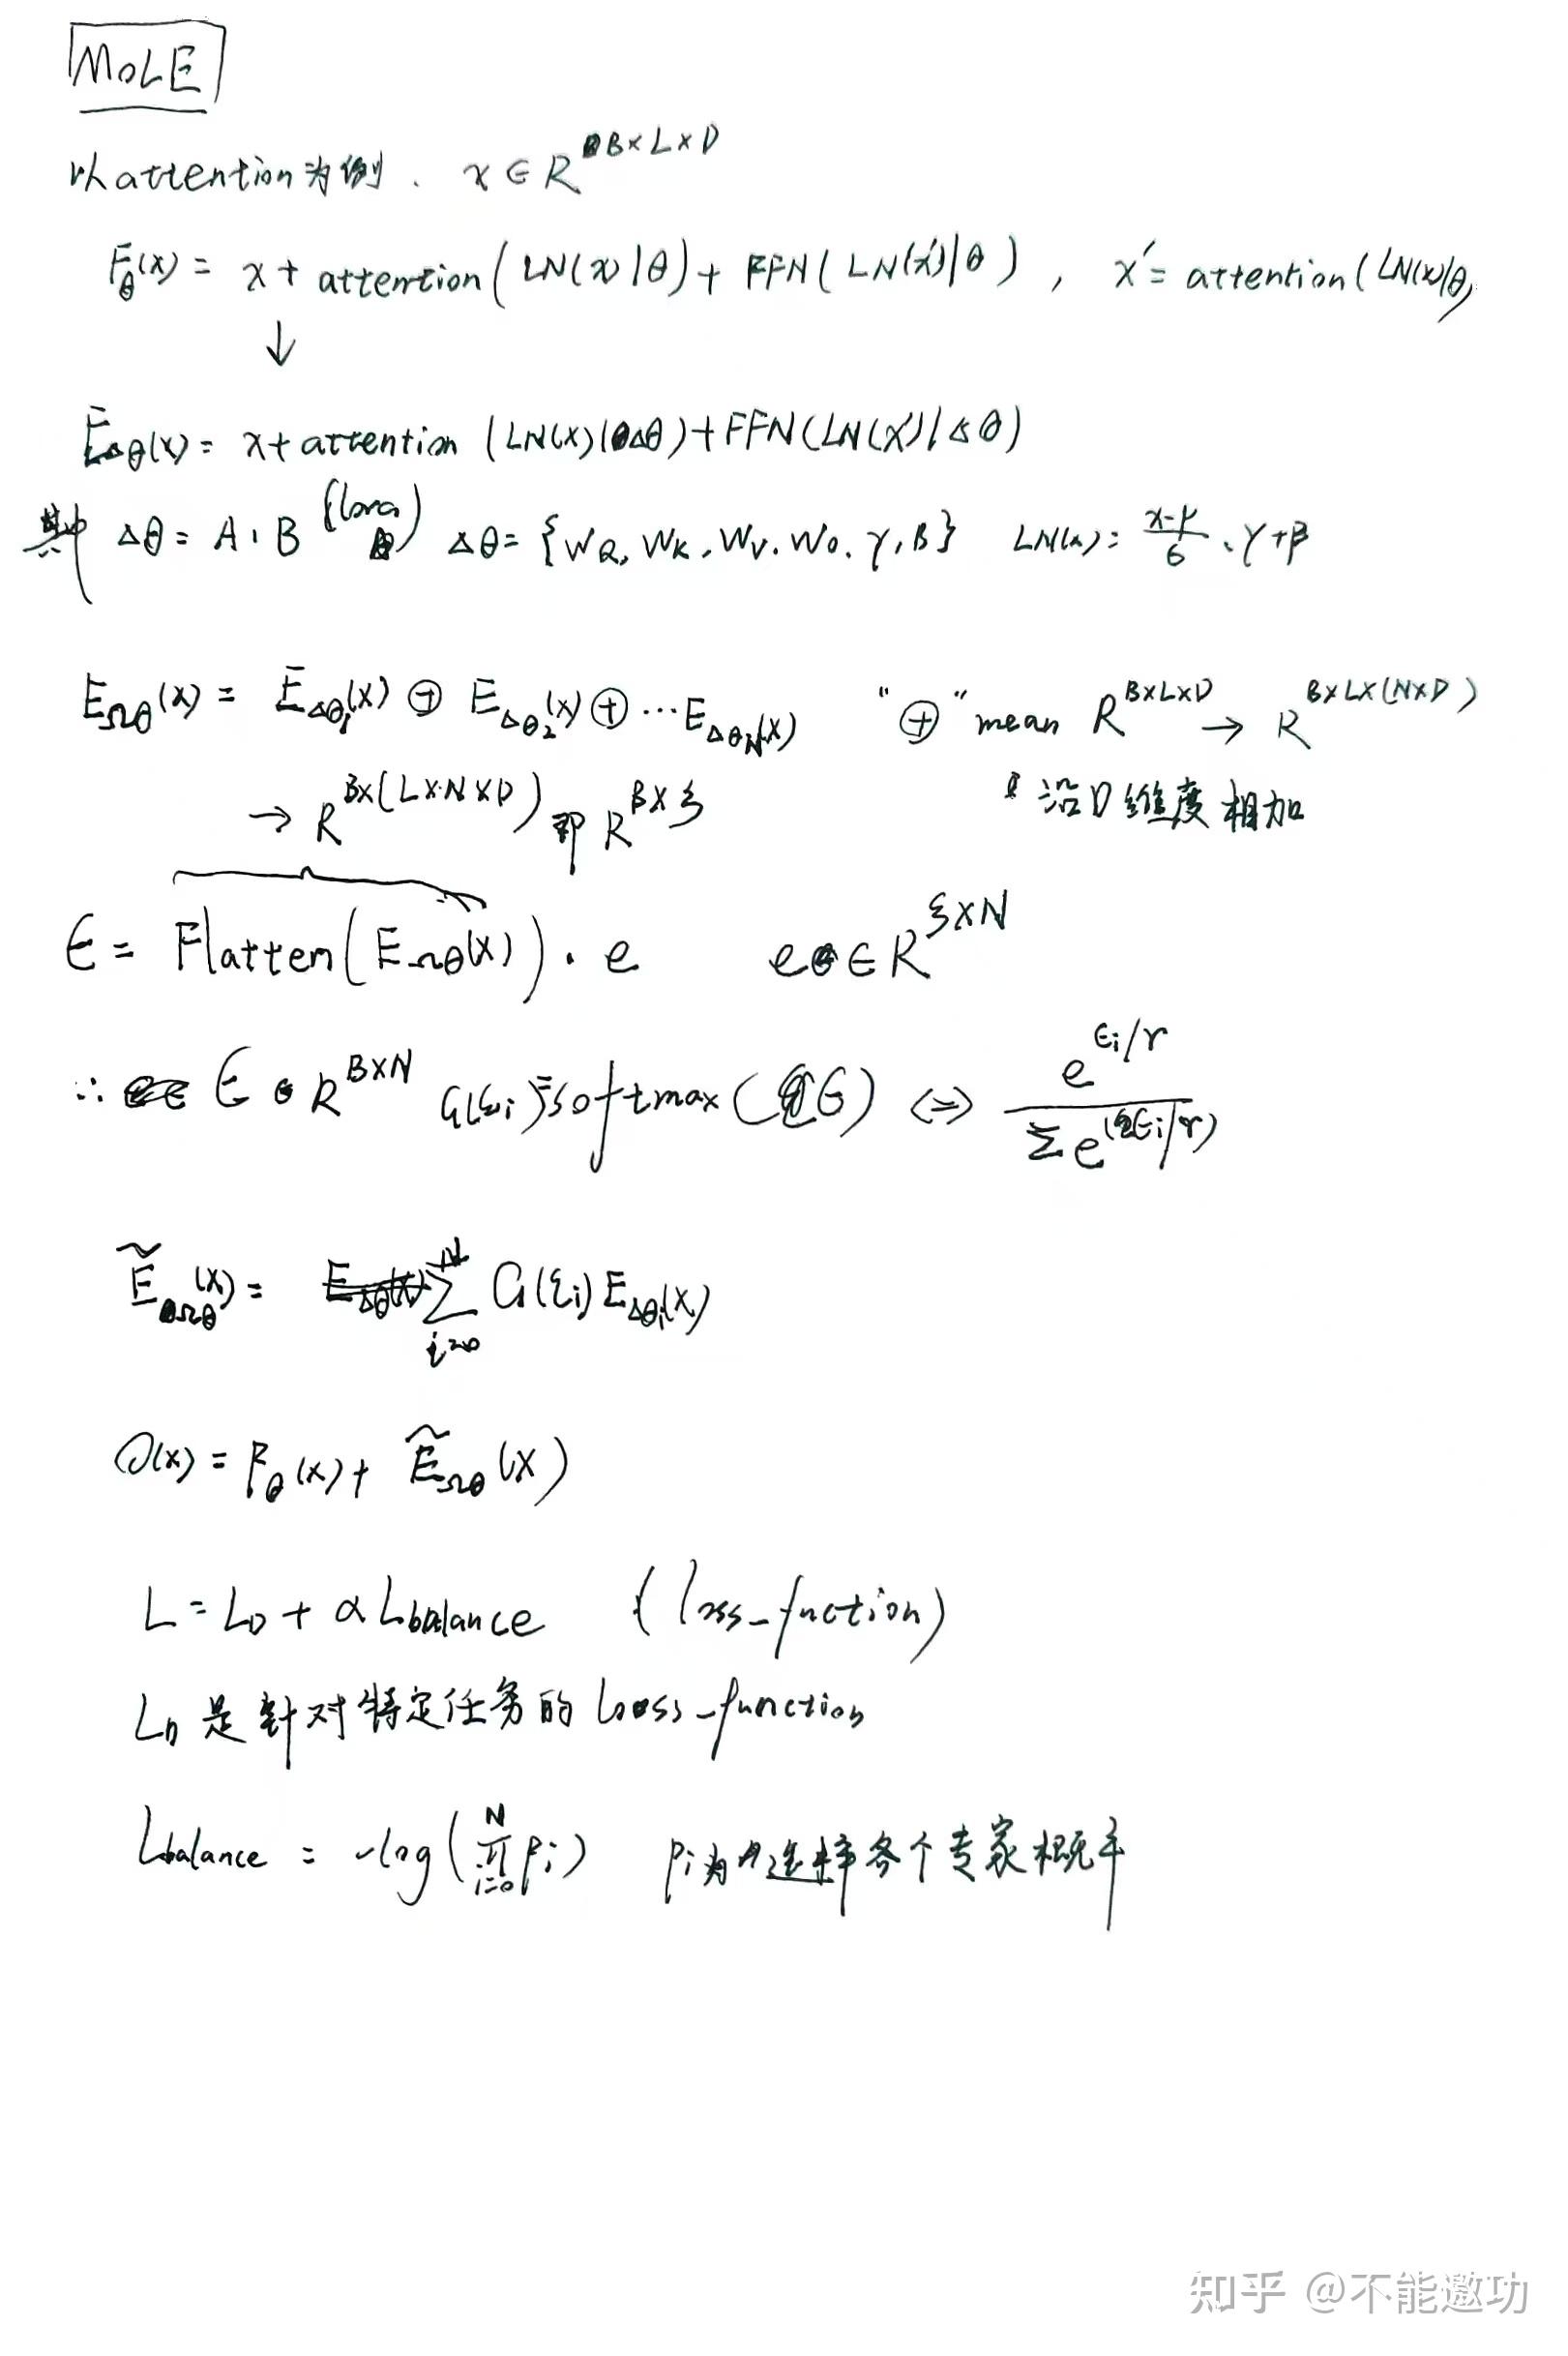 MOLE
以attention为例. x ∈ R^{B×L×D}
F_θ(x) = x + attention(LN(x)|θ) + FFN(LN(x′)|θ), x′ = attention(LN(x)|θ)
↓
E_{Δθ}(x) = x + attention(LN(x)|Δθ) + FFN(LN(x′)|Δθ)
其中 Δθ = A·B (lora) Δθ = {W_Q, W_K, W_V, W_O, γ, β} LN(x) = \frac{x-μ}{6}·γ+β
E_{Ωθ}(x) = E_{Δθ_1}(x) ⊕ E_{Δθ_2}(x) ⊕ ... E_{Δθ_N}(x) "⊕" mean R^{B×L×D} → R^{B×L×(N×D)}
→ R^{B×(L×N×D)} 即 R^{B×ξ} 沿D维度相加
ε = Flatten(E_{Ωθ}(x)) · e e ∈ R^{ξ×N}
∴ ε ∈ R^{B×N} G(ε_i) = softmax(ε) ⇔ \frac{e^{ε_i/τ}}{Σ e^{(ε_i/τ)}}
\tilde{E}_{Ωθ}(x) = \sum_{i=0}^{N} G(ε_i) E_{Δθ_i}(x)
O(x) = F_θ(x) + \tilde{E}_{Ωθ}(x)
L = L_D + αL_{balance} (loss_fuction)
L_D 是针对特定任务的 loss_function
L_{balance} = -log(\prod_{i=0}^{N} p_i) p_i为选择各个专家概率
知乎 @不能邀功